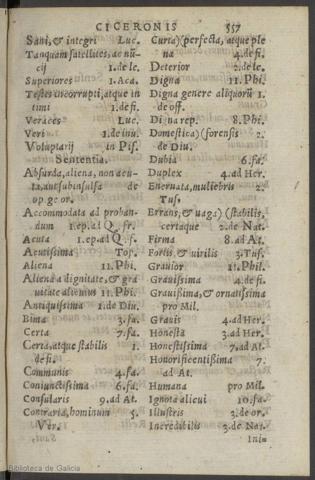 CICERONIS 557
Sani, & integri Luc.
Tanquam satellites, ac nū-
cij 1. de le.
Superiores 1. Aca.
Testes incorrupti, atque in
timi 1. de fi.
Veraces Luc.
Veri 1. de inu.
Voluptarij in Pis.
Sententia.
Absurda, aliena, non acu-
ta, aut subinsulsa de
op. ge or.
Accommodata ad proban-
dum 1. ep. ad Q. fr.
Acuta 1. ep. ad Q. s.
Acutissima Top.
Aliena 11. Phi.
Aliena a dignitate, & gra
uitate alicuius 11. Phi.
Antiquissima 1. de Diu.
Bima 3. fa.
Certa 7. fa.
Certa, atque stabilis 1.
de fi.
Communis 4. fa.
Coniunctissima 6. fa.
Consularis 9. ad At.
Contraria, hominum 5.
Ver.
Curta) (perfecta, atque ple
na 4. de fi.
Deterior 2. de le.
Digna 11. Phi.
Digna genere aliquorū 1.
de off.
Digna rep. 8. Phi.
Domestica) (forensis 2.
de Diu.
Dubia 6. fa.
Duplex 4. ad Her.
Eneruata, muliebris 2.
Tus.
Errans, & uaga) (stabilis,
certaque 2. de Nat.
Firma 8. ad At.
Fortis, & uirilis 3. Tus.
Grauior 11. Phil.
Grauissima 4. de fi.
Grauissima, & ornatissima
pro Mil.
Grauis 4. ad Her.
Honesta 3. ad Her.
Honestissima 7. ad At.
Honorificentissima 7.
ad At.
Humana pro Mil.
Ignota alicui 10. fa.
Illustris 3. de or.
Incredibilis 3. de Nat.
Inin-
Biblioteca de Galicia